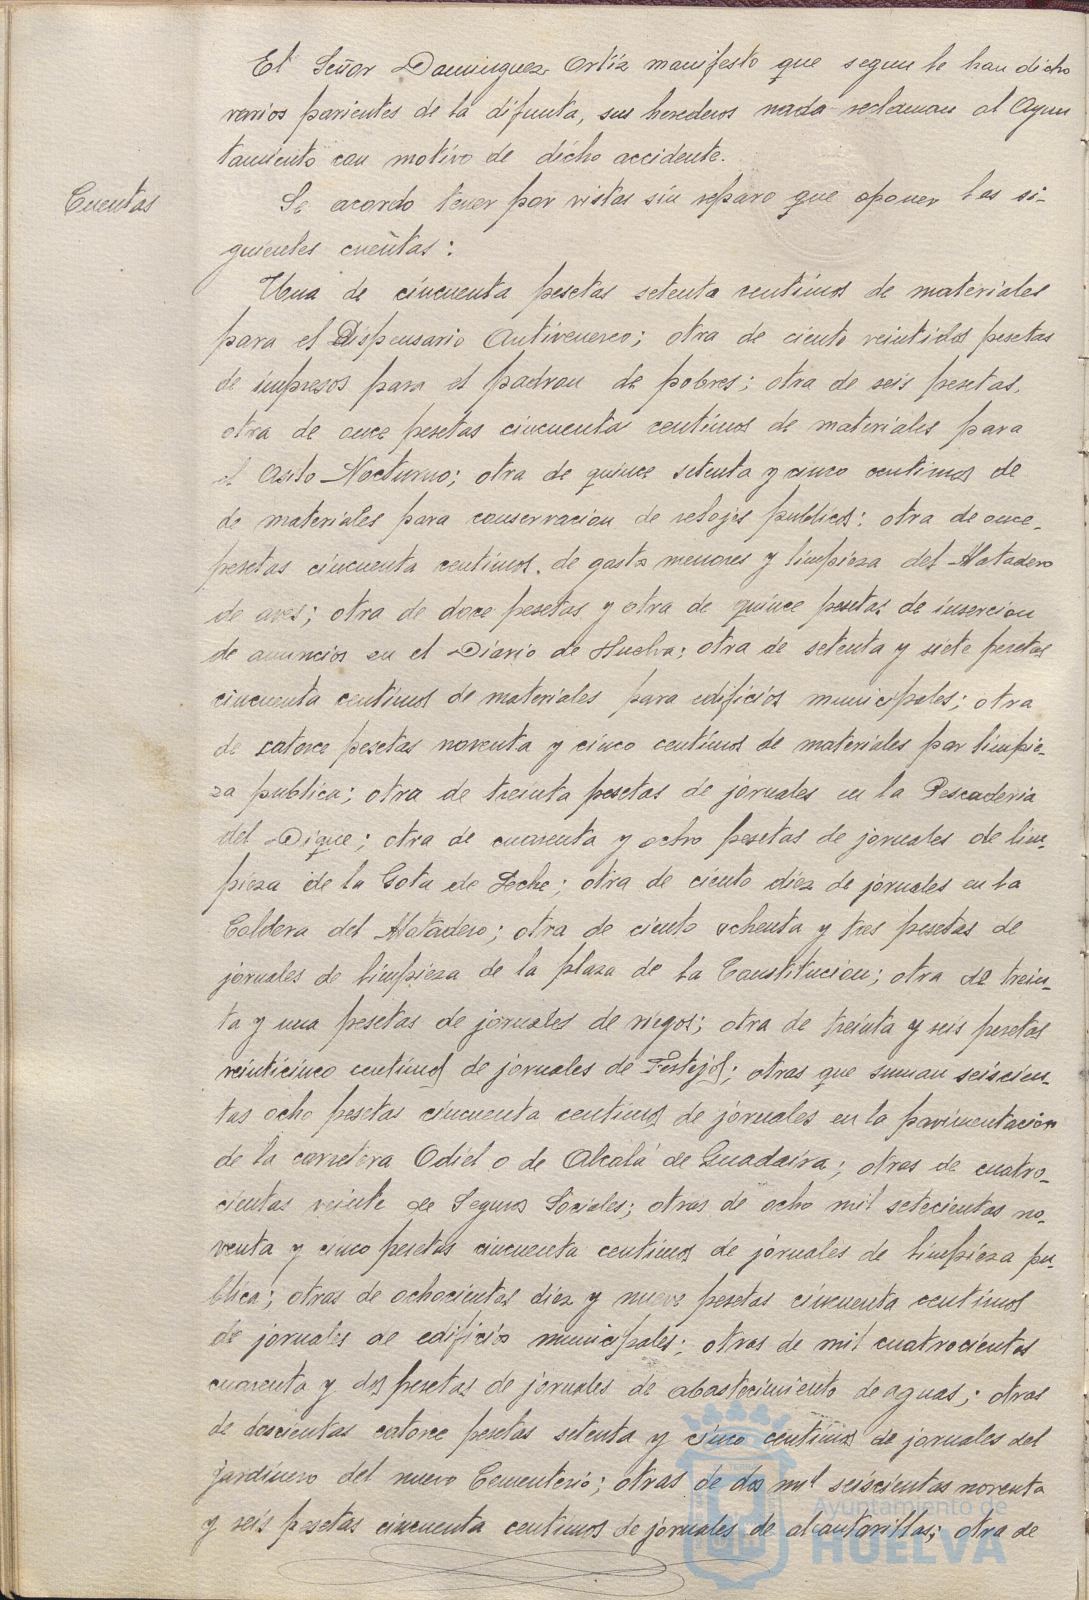 El Señor Dominguez Ortiz manifesto que segun le han dicho
varios parientes de la difunta, sus herederos nada reclaman al Ayun
tamiento con motivo de dicho accidente.
Cuentas
Se acordo tener por vistas sin reparo que oponer las si-
guientes cuentas:
Una de cincuenta pesetas setenta centimos de materiales
para el Dispensario Antivenereo; otra de ciento veintidos pesetas
de impresos para el padron de pobres; otra de seis pesetas,
otra de once pesetas cincuenta centimos de materiales para
el Asilo Nocturno; otra de quince setenta y cinco centimos de
de materiales para conservacion de relojes publicos; otra de once-
pesetas cincuenta centimos. de gasto menores y limpieza del Matadero
de aves; otra de doce pesetas y otra de quince pesetas de insercion
de anuncios en el Diario de Huelva; otra de setenta y siete pesetas
cincuenta centimos de materiales para edificios municipales; otra
de catorce pesetas noventa y cinco centimos de materiales par limpie-
za publica; otra de treinta pesetas de jornales en la Pescaderia
del Dique; otra de cuarenta y ocho pesetas de jornales de lim-
pieza de la Gota de Leche; otra de ciento diez de jornales en la
Caldera del Matadero; otra de ciento ochenta y tres pesetas de
jornales de limpieza de la plaza de la Constitucion; otra de trein-
ta y una pesetas de jornales de riegos; otra de treinta y seis pesetas
veinticinco centimos de jornales de Festejos; otras que suman seiscien-
tas ocho pesetas cincuenta centimos de jornales en la pavimentacion
de la carretera Odiel o de Alcalá de Guadaira; otras de cuatro-
cientas veinte de Seguros Sociales; otras de ocho mil setecientas no-
venta y cinco pesetas cincuenta centimos de jornales de limpieza pu-
blica; otras de ochocientas diez y nueve pesetas cincuenta centimos
de jornales de edificios municipales; otras de mil cuatrocientas
cuarenta y dos pesetas de jornales de abastecimiento de aguas; otras
de doscientas catorce pesetas setenta y cinco centimos de jornales del
jardinero del nuevo Cementerio; otras de dos mil seiscientas noventa
y seis pesetas cincuenta centimos de jornales de alcantarillas; otra de
Ayuntamiento de
HUELVA